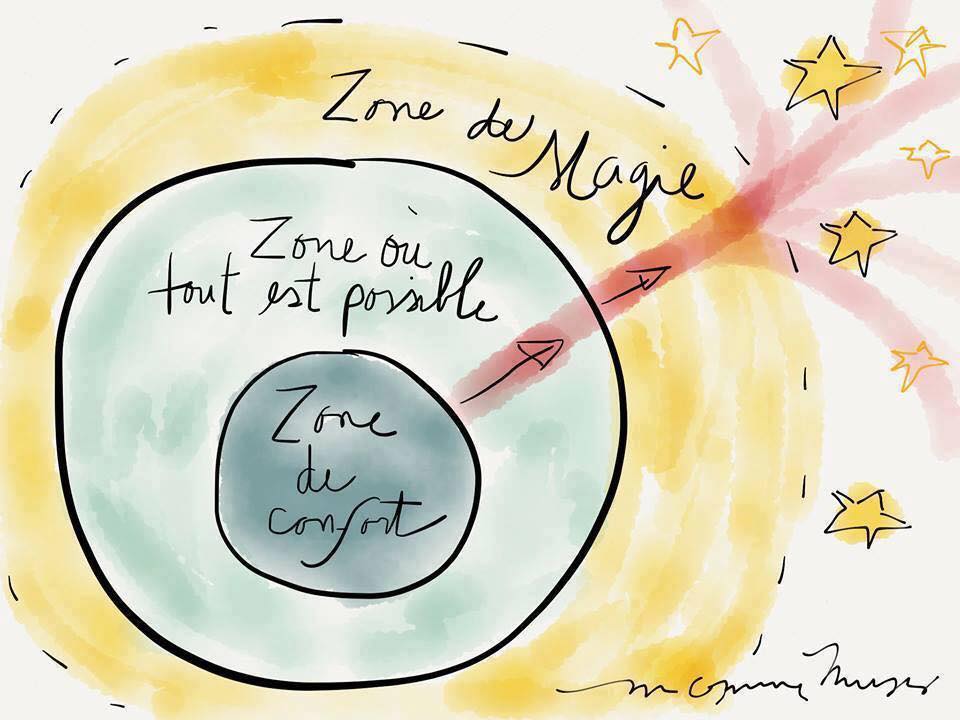 Zone de Magie
Zone où
tout est possible
Zone
de
confort